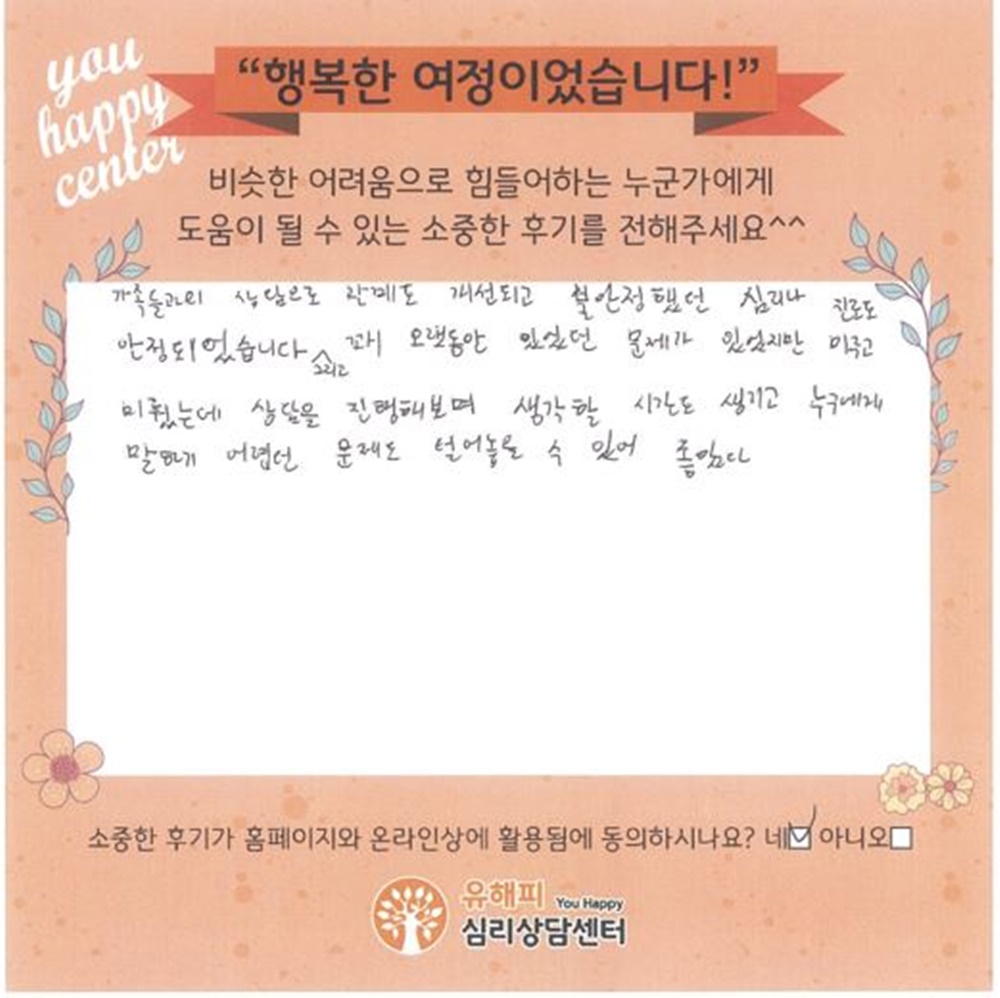 you
happy
center
“행복한 여정이었습니다!”
비슷한 어려움으로 힘들어하는 누군가에게
도움이 될 수 있는 소중한 후기를 전해주세요^^
가족들과의 상담으로 관계도 개선되고 불안정했던 심리나 진로도
안정되었습니다 그리고 꽤 오랫동안 있었던 문제가 있었지만 미루고
미뤘는데 상담을 진행해보며 생각할 시간도 생기고 누구에게
말하기 어렵던 문제도 털어놓을 수 있어 좋았다
소중한 후기가 홈페이지와 온라인상에 활용됨에 동의하시나요? 네 아니오
유해피 You Happy
심리상담센터